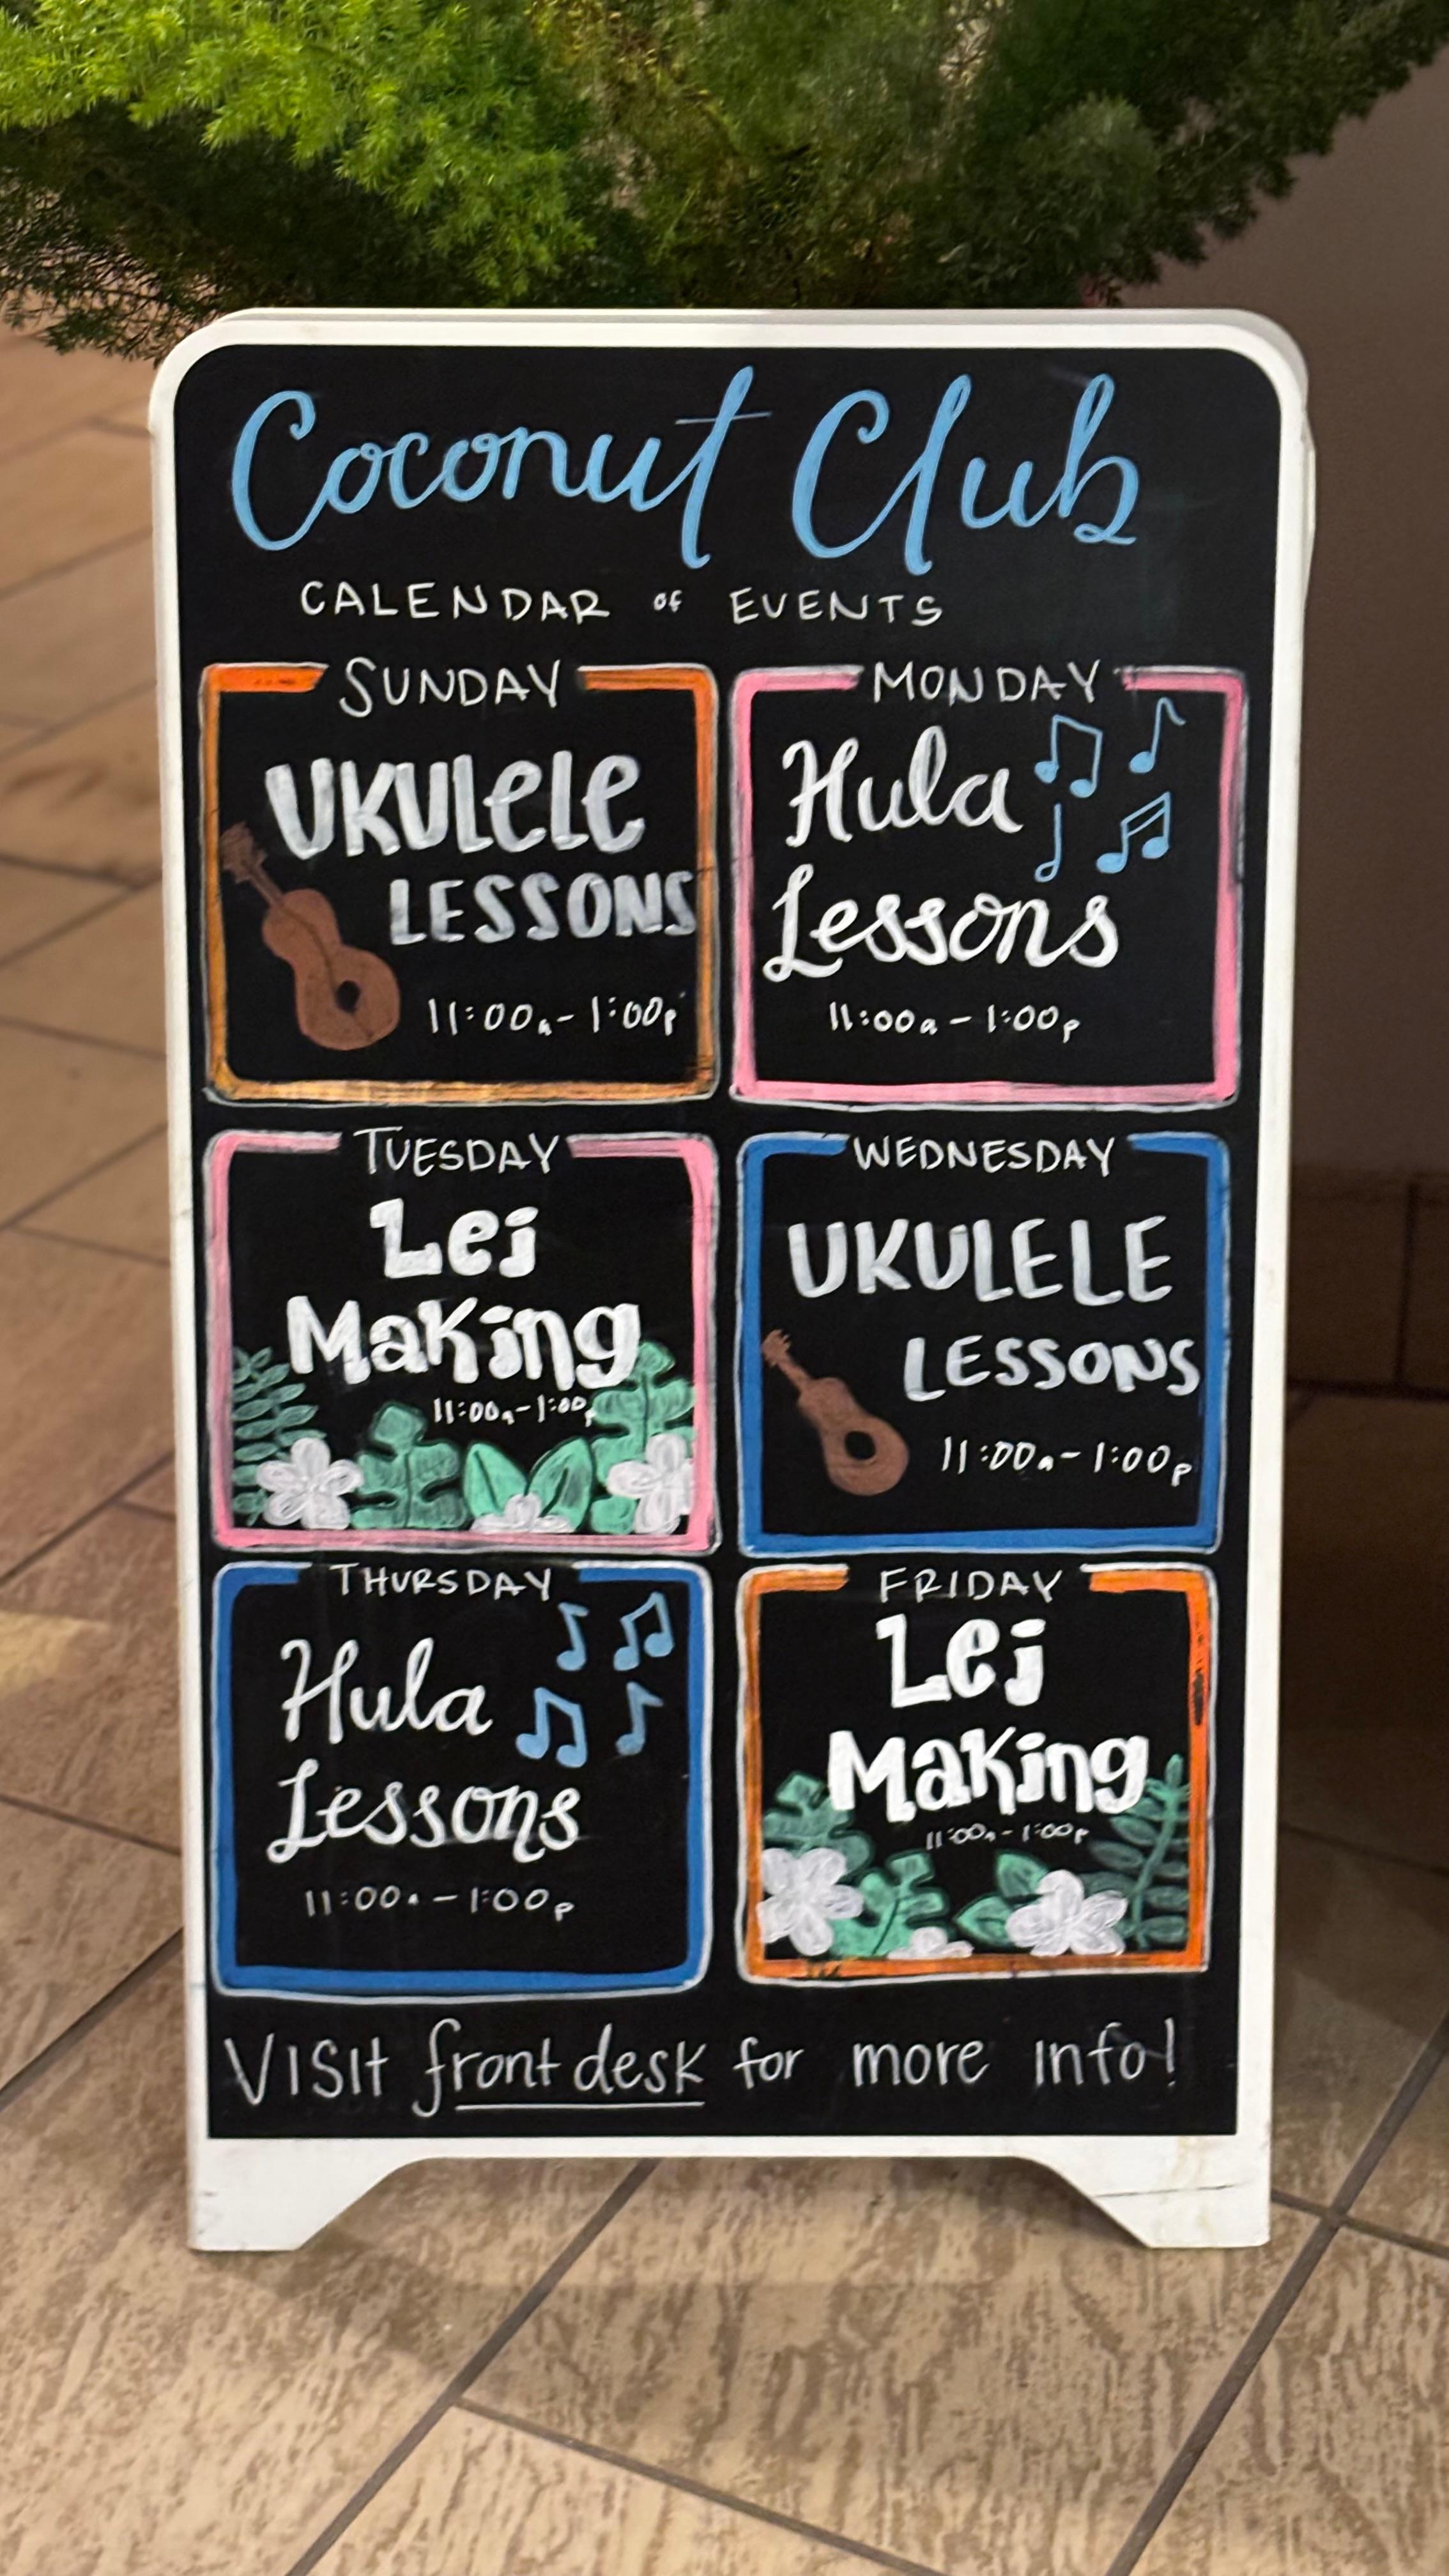 Coconut Club
CALENDAR of EVENTS
SUNDAY
UKULELE
LESSONS
11:00a - 1:00p
MONDAY
Hula
Lessons
11:00a - 1:00p
TUESDAY
Lei
Making
11:00a - 1:00p
WEDNESDAY
UKULELE
LESSONS
11:00a - 1:00p
THURSDAY
Hula
Lessons
11:00a - 1:00p
FRIDAY
Lei
Making
11:00a - 1:00p
VISIt front desk for more info!